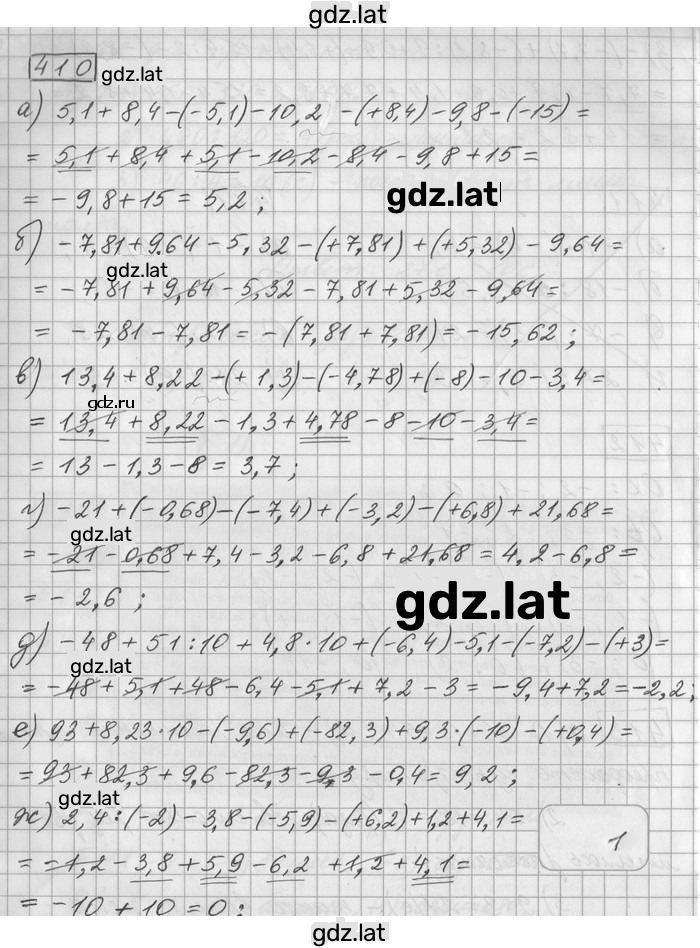 gdz.lat
410
gdz.lat
а) 5,1 + 8,4 - (-5,1) - 10,2 - (+8,4) - 9,8 - (-15) =
= 5,1 + 8,4 + 5,1 - 10,2 - 8,4 - 9,8 + 15 =
= - 9,8 + 15 = 5,2 ;
gdz.lat
б) - 7,81 + 9.64 - 5,32 - (+7,81) + (+5,32) - 9,64 =
gdz.lat
= - 7,81 + 9,64 - 5,32 - 7,81 + 5,32 - 9,64 =
= - 7,81 - 7,81 = - (7,81 + 7,81) = - 15,62 ;
в) 13,4 + 8,22 - (+ 1,3) - (-4,78) + (-8) - 10 - 3,4 =
gdz.ru
= 13,4 + 8,22 - 1,3 + 4,78 - 8 - 10 - 3,4 =
= 13 - 1,3 - 8 = 3,7 ;
г) - 21 + (-0,68) - (-7,4) + (-3,2) - (+6,8) + 21,68 =
gdz.lat
= - 21 - 0,68 + 7,4 - 3,2 - 6,8 + 21,68 = 4,2 - 6,8 =
= - 2,6 ;
gdz.lat
д) - 48 + 51 : 10 + 4,8 · 10 + (-6,4) - 5,1 - (-7,2) - (+3) =
gdz.lat
= - 48 + 5,1 + 48 - 6,4 - 5,1 + 7,2 - 3 = - 9,4 + 7,2 = -2,2 ;
е) 93 + 8,23 · 10 - (-9,6) + (-82,3) + 9,3 · (-10) - (+0,4) =
gdz.lat
= 93 + 82,3 + 9,6 - 82,3 - 93 - 0,4 = 9,2 ;
gdz.lat
ж) 2,4 : (-2) - 3,8 - (-5,9) - (+6,2) + 1,2 + 4,1 =
1
= - 1,2 - 3,8 + 5,9 - 6,2 + 1,2 + 4,1 =
= - 10 + 10 = 0 ;
gdz.lat